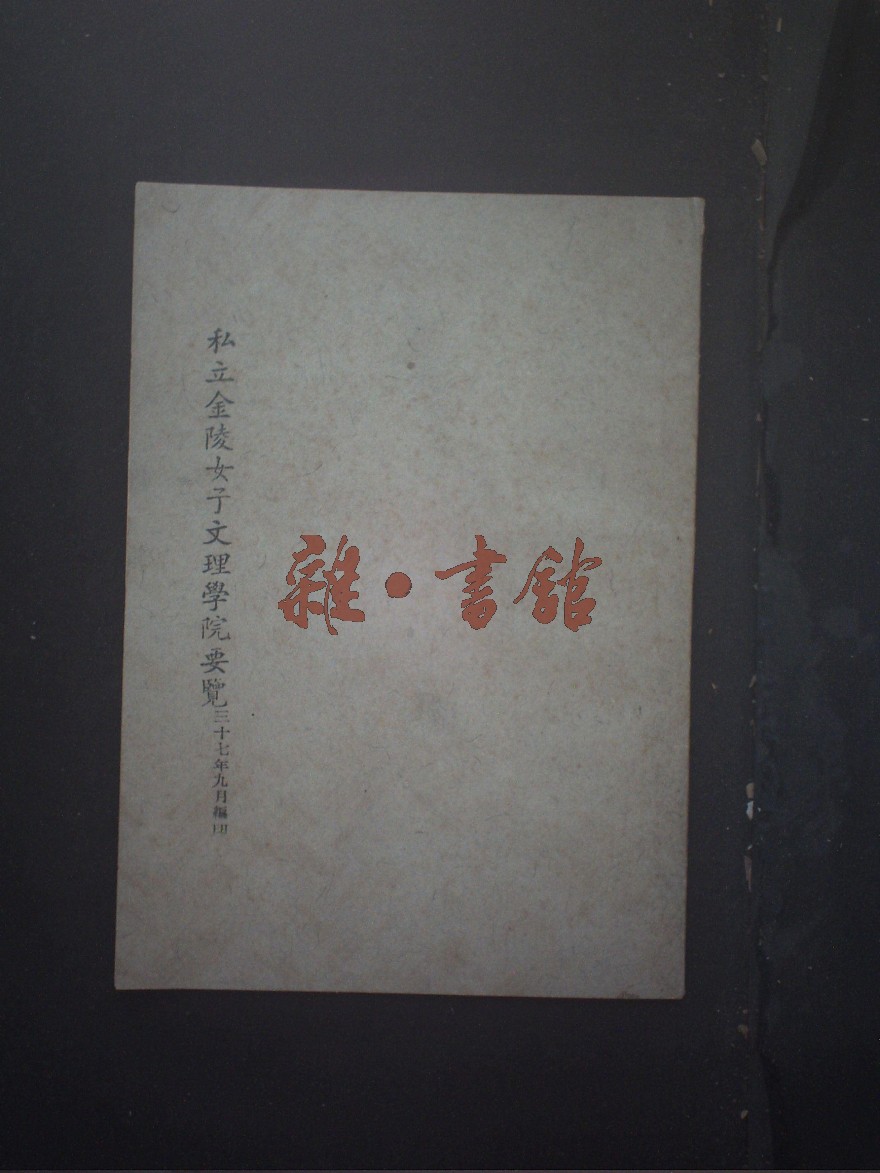 私立金陵女子文理學院要覽三十七年九月編印
雜·書館